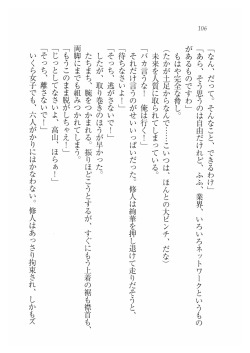 106
「なん、だって。そんなこと、できるわけ」
「あら、そう思うのは自由だけれど。ふふ、業界、いろいろネットワークというもの
があるものですわ」
もはや完全な脅し。
(たかが土足からなんで……こいつは、ほんとの大ピンチ、だな)
未来を人質に取られてしまっている。
「バカ言うな! 俺は行く!」
それだけ言うのがせいいっぱいだった。修人は絢華を押し退けて走りだそうと、
「待ちなさいよ!」
したが、取り巻きのほうが早かった。
「そっち、逃がさないで!」
たちまち、腕をつかまれる。振りほどこうとするが、すぐにもう上着の裾も襟首も、
両脚にまでも組みつかれてしまう。
「もうこのまま脱がしちゃえ!」
「じっとしてなさいよ、高山、ほらぁ!」
「そっち、離さないで!」
いくら女子でも、六人がかりにはかなわない。修人はあっさり拘束され、しかもズ